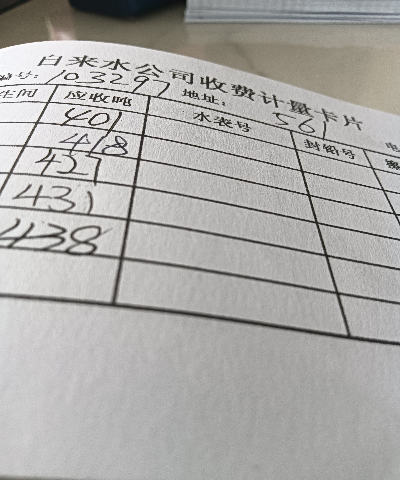 自来水公司收费计量卡片
编号: 103297 地址: 501
年间 应收吨 水表号 封铅号
401
418
421
431
438